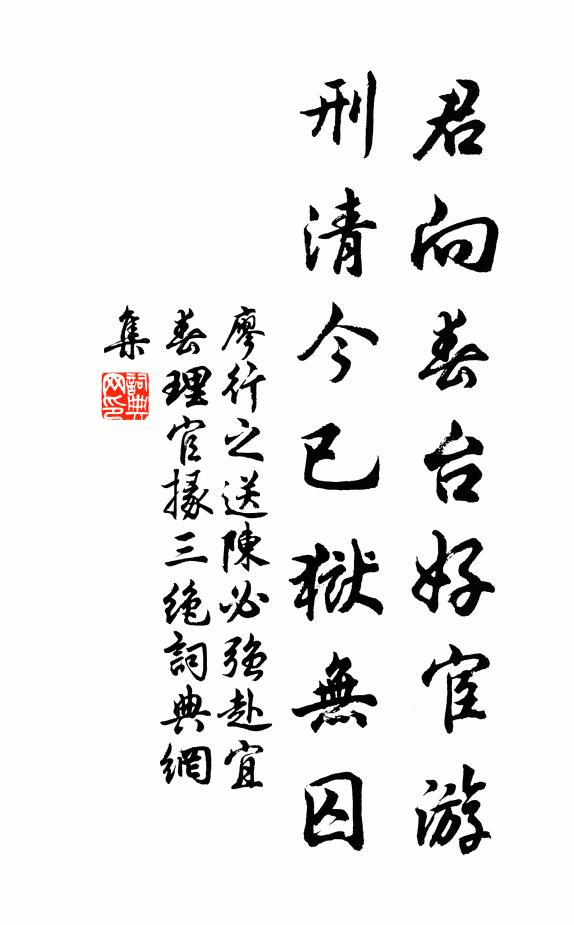 君向春台好宦游
刑清今已獄無囚
廖行之送陳必強赴宜
春理官掾三绝詞典網
集
詞典网印